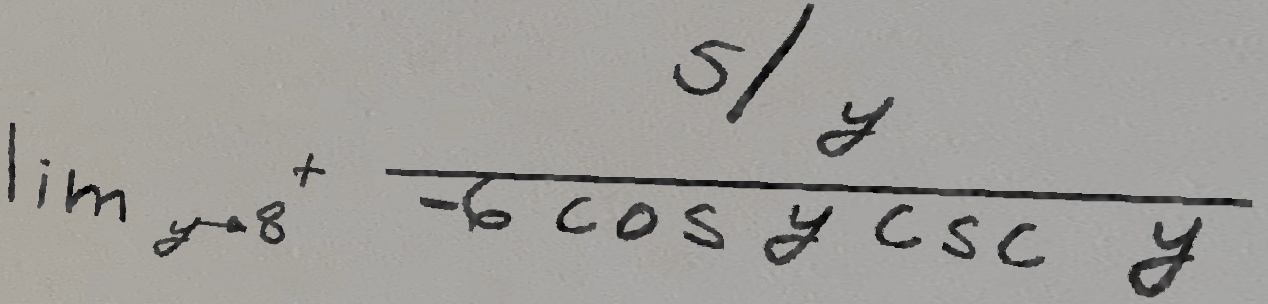 \lim_{y \to 8^+} \frac{5/y}{-6 \cos y \csc y}